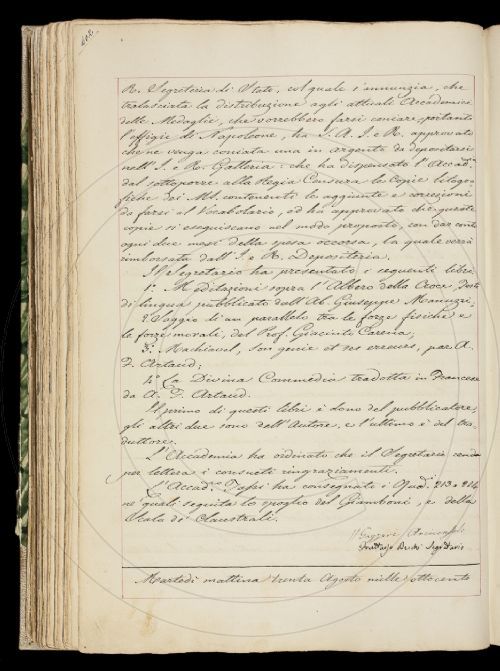 R. Segreteria di Stato, col quale s'annunzia, che
tralasciata la distribuzione agli attuali Accademici
delle Medaglie, che vorrebbero farsi coniare, portanti
l'effigie di Napoleone, ha S. A. I. e R. approvato
che ne venga coniata una in argento da depositarsi
nell'I. e R. Galleria: che ha dispensato l'Accad.ª
dal sottoporre alla Regia Censura le Copie litogra-
fiche dei MS. contenenti le aggiunte e correzioni
da farsi al Vocabolario, ed ha approvato che queste
copie si eseguiscano nel modo proposto, con dar conto
ogni due mesi della spesa occorsa, la quale verrà
rimborsata dall'I. e R. Depositeria.
Il Segretario ha presentato i seguenti libri
1.º Meditazioni sopra l'Albero della Croce, Testo
di lingua pubblicato dall'Ab. Giuseppe Manuzzi,
2. Saggio di un parallelo tra le forze fisiche e
le forze morali, del Prof. Giacinto Carena,
3.º Machiavel, son genie et ses erreurs, par A.
F. Artaud;
4.º La Divina Commedia tradotta in Francese
da A. F. Artaud.
Il primo di questi libri è dono del pubblicatore,
gli altri due sono dell'Autore, e l'ultimo è del tra-
duttore.
L'Accademia ha ordinato che il Segretario renda
per lettera i consueti ringraziamenti.
L'Accad.co Tassi ha consegnati i Quad. 213 e 214
ne' quali seguita lo spoglio del Giamboni, e della
Scala di Claustrali.
Fruttuoso Becchi Segretario
Martedì mattina trenta Agosto mille ottocento